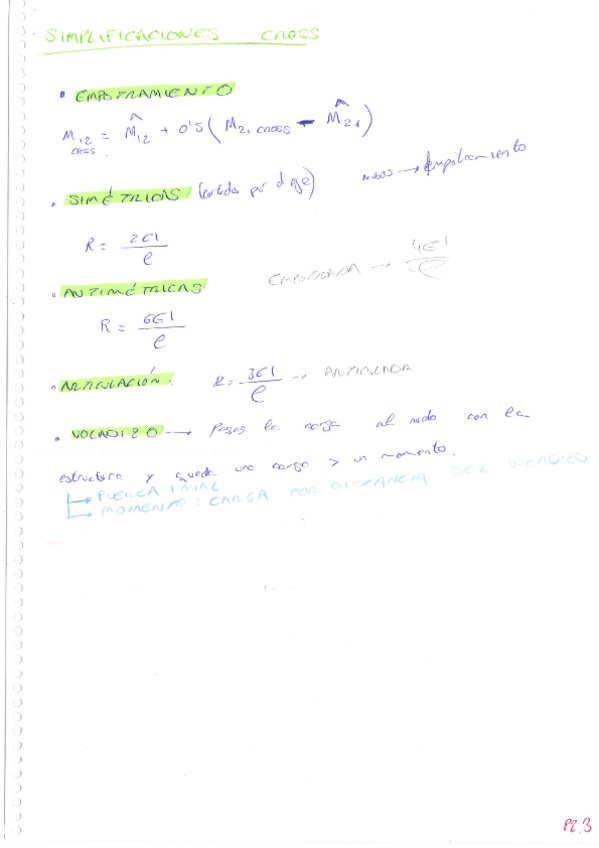 SIMPLIFICACIONES CROSS
• EMPOTRAMIENTO
M12 CROSS = M̂12 + 0'5 ( M21 CROSS - M̂21 )
• SIMÉTRICAS (cortadas por el eje) nudos → Empotramiento
R = 2EI / l
EMPOTRADA → 4EI / l
• ANTIMÉTRICAS
R = 6EI / l
• ARTICULACIÓN: R = 3EI / l → ARTICULADA
• VOLADIZO → Pasas la carga al nudo con la
estructura y queda una carga y un momento.
↳ FUERZA IGUAL
↳ MOMENTO: CARGA POR DISTANCIA DEL VOLADIZO
P2.3